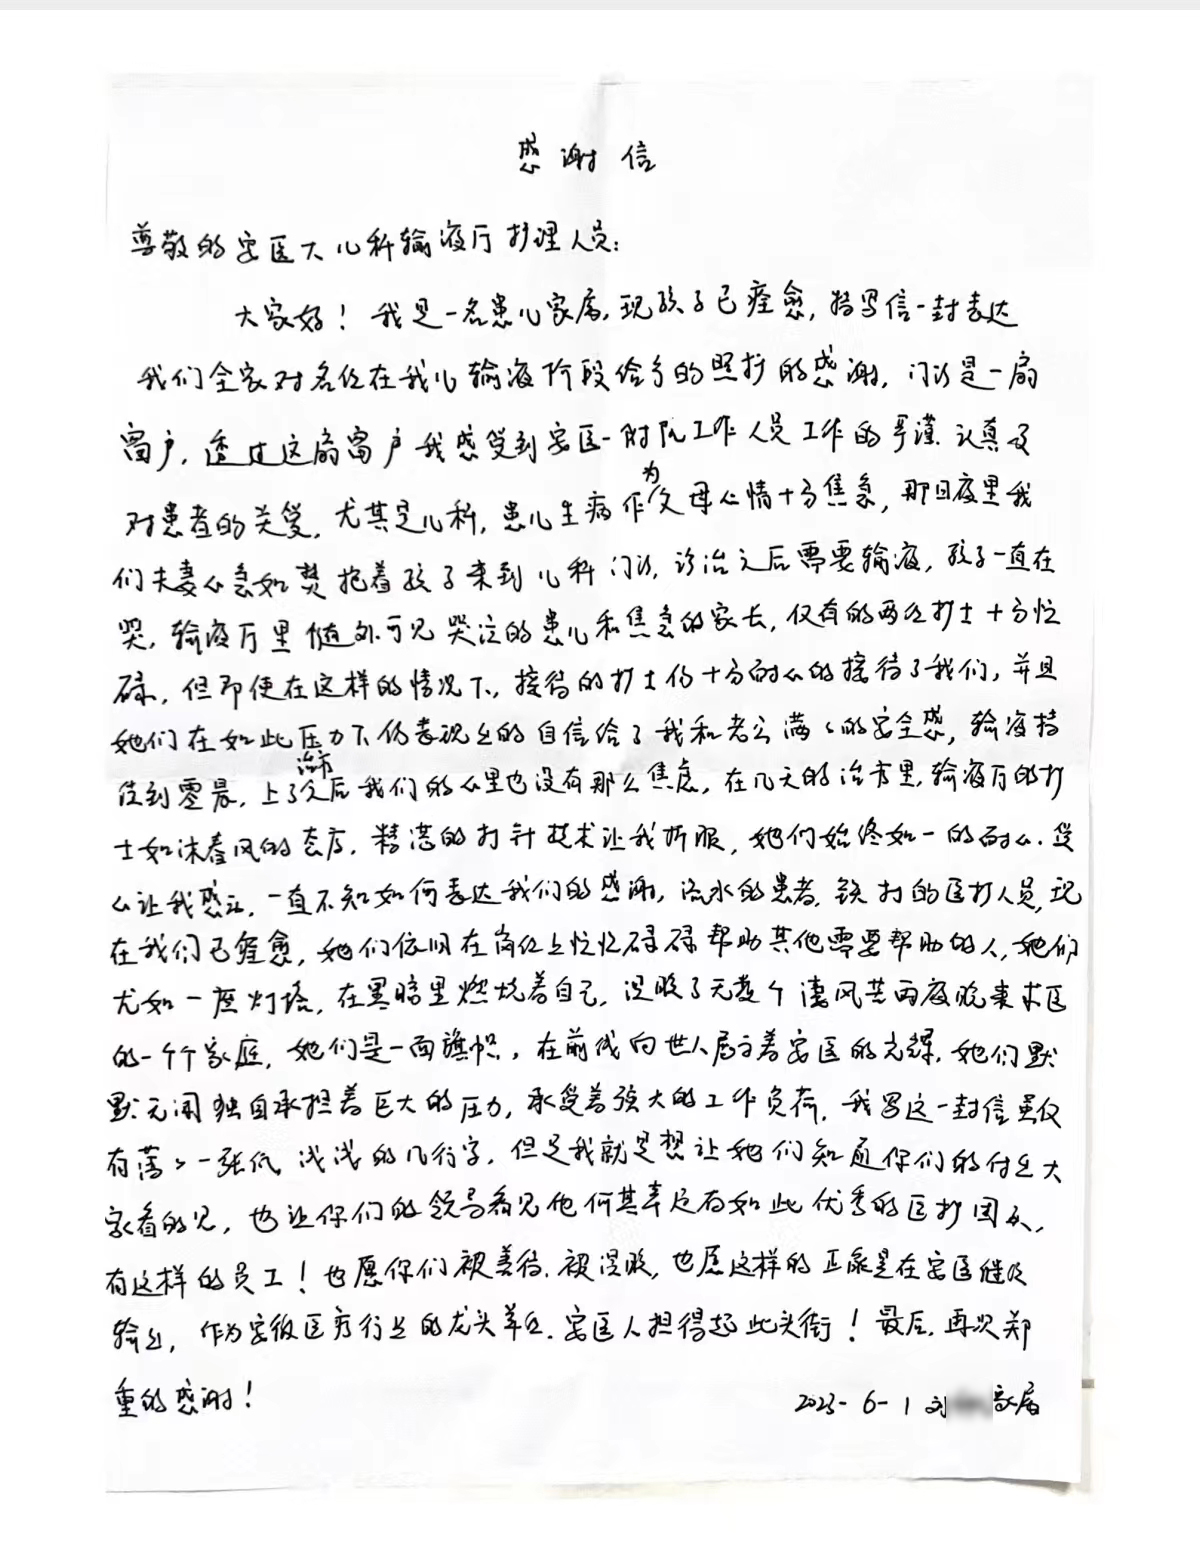 感谢信
尊敬的安医大儿科输液厅护理人员：
大家好！我是一名患儿家属，现孩子已痊愈，特写信一封表达
我们全家对各位在我儿输液阶段给予的照护的感谢，门诊是一扇
窗户，透过这扇窗户我感受到安医一附院工作人员工作的严谨、认真及
对患者的关爱，尤其是儿科，患儿生病作为父母心情十分焦急，那日夜里我
们夫妻心急如焚抱着孩子来到儿科门诊，诊治之后需要输液，孩子一直在
哭，输液厅里随处可见哭泣的患儿和焦急的家长，仅有的两位护士十分忙
碌，但即使在这样的情况下，接待的护士仍十分耐心的接待了我们，并且
她们在如此压力下仍表现出的自信给了我和老公满满的安全感，输液持
续到零晨，上了治疗后我们的心里也没有那么焦虑，在几天的治疗里，输液厅的护
士如沐春风的态度，精湛的打针技术让我折服，她们始终如一的耐心、
心让我感动，一直不知如何表达我们的感谢，流水的患者，铁打的医护人员，现
在我们已痊愈，她们依旧在岗位上忙忙碌碌帮助其他需要帮助的人，她们
尤如一座灯塔，在黑暗里燃烧着自己，照了无数个凄风苦雨夜晚来求医
的一个个家庭，她们是一面旗帜，在前线向世人展示着安医的光辉，她们默
默无闻独自承担着巨大的压力，承受着强大的工作负荷，我写这一封信虽仅
有薄薄一张纸，浅浅的几行字，但是我就是想让她们知道你们的付出大
家看的见，也让你们的领导看见他何其幸运有如此优秀的医护团队，
有这样的员工！也愿你们被善待，被，也愿这样的正能量在安医继续
输出，作为安徽医疗行业的龙头单位，安医人担得起此头衔！最后，再次郑
重的感谢！
2023-6-1 刘 家属